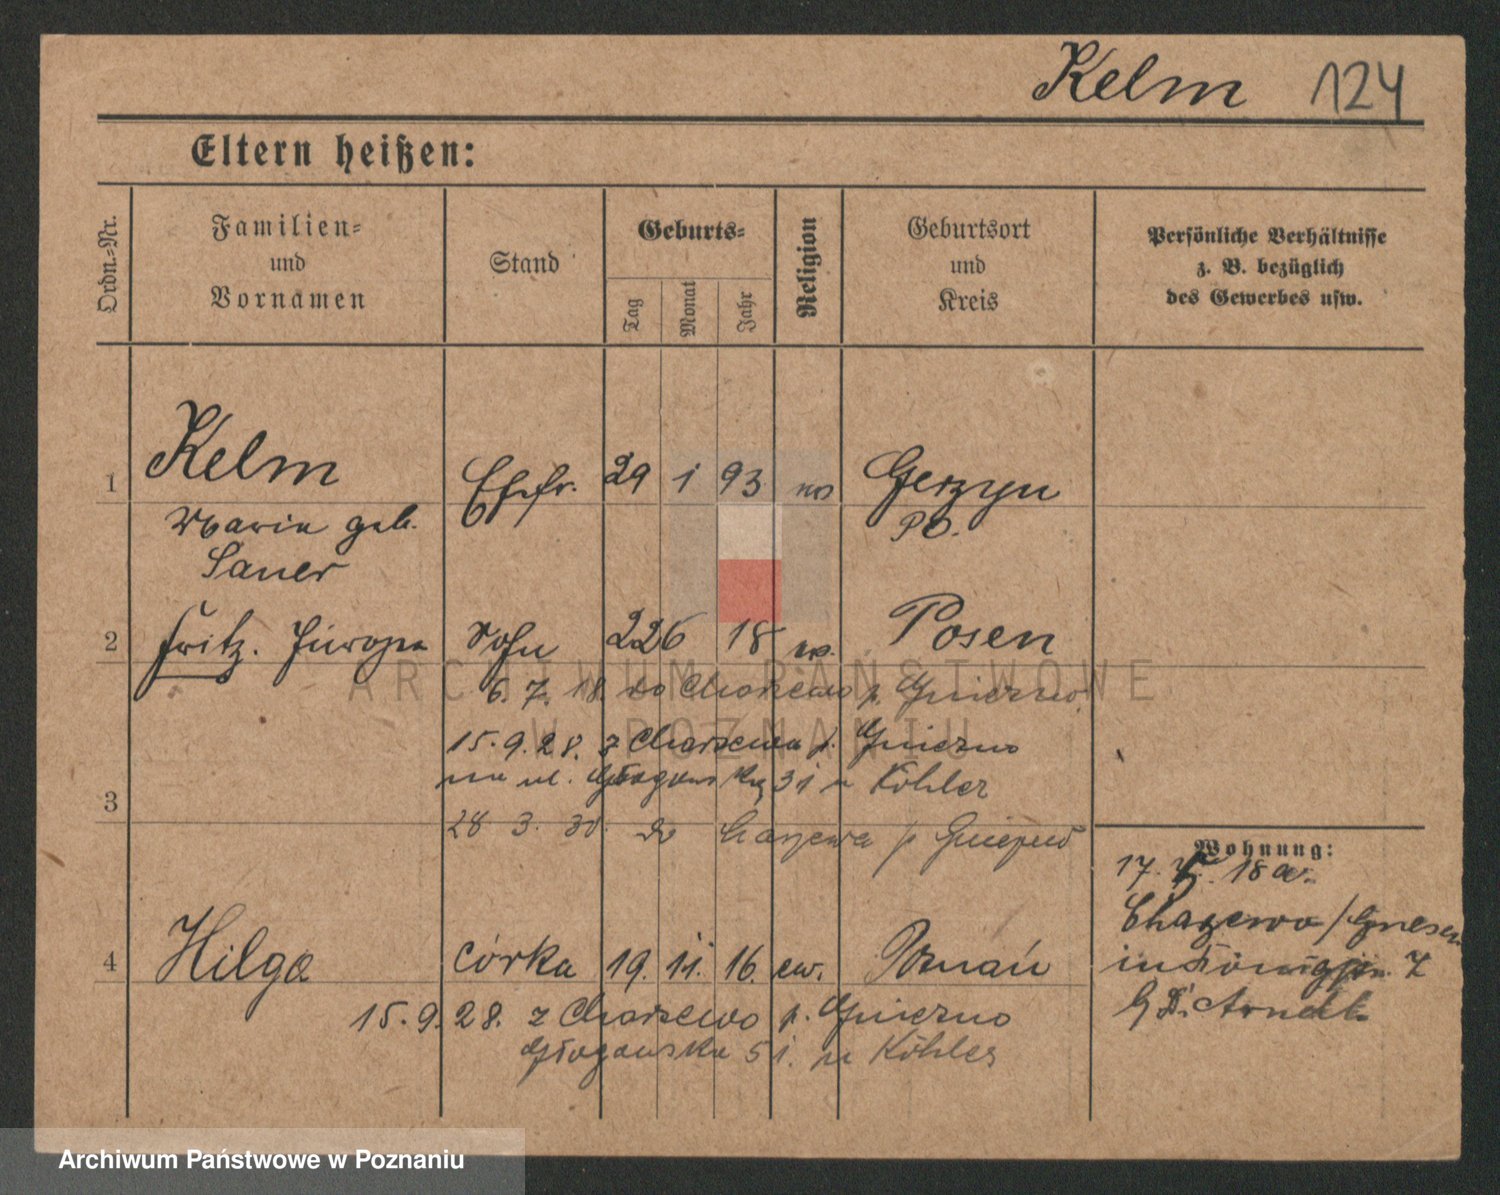 Kelm 124
Eltern heißen:
Ordn.-Nr.
Familien-
und
Vornamen
Stand
Geburts-
Tag
Monat
Jahr
Religion
Geburtsort
und
Kreis
Persönliche Verhältnisse
z. B. bezüglich
des Gewerbes usw.
1 Kelm Ehefr. 29 1 93 Gerzyn
Marie geb. PO.
Sauer
2 Fritz. Sohn 22 6 18 Posen
6. 7. 18. do Charzewo p. Gniezno
15. 9. 28. z Charzewa p. Gniezno
na ul. Głogowską 31 u Köhler
3
28 3. 30. do p Gniezno
Wohnung:
17. 18 a.
Chazewo / Gnesen
4 Hilga córka 19. 11. 16. ew. Poznań
15. 9. 28. z Charzewo p. Gniezno
Głogowska 51. u Köhler
ARCHIWUM PAŃSTWOWE
W POZNANIU
Archiwum Państwowe w Poznaniu